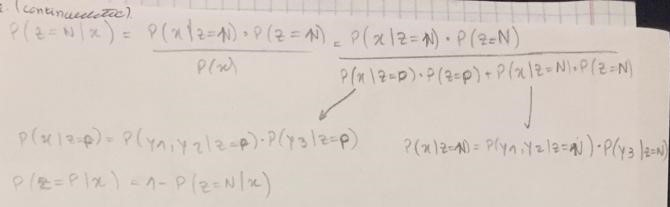 (continued etc).
P(z=N|x) = P(x|z=N)·P(z=N) / P(x) = P(x|z=N)·P(z=N) / P(x|z=p)·P(z=p) + P(x|z=N)·P(z=N)
P(x|z=p) = P(y1,y2|z=p)·P(y3|z=p)
P(x|z=N) = P(y1,y2|z=N)·P(y3|z=N)
P(z=P|x) = 1 - P(z=N|x)